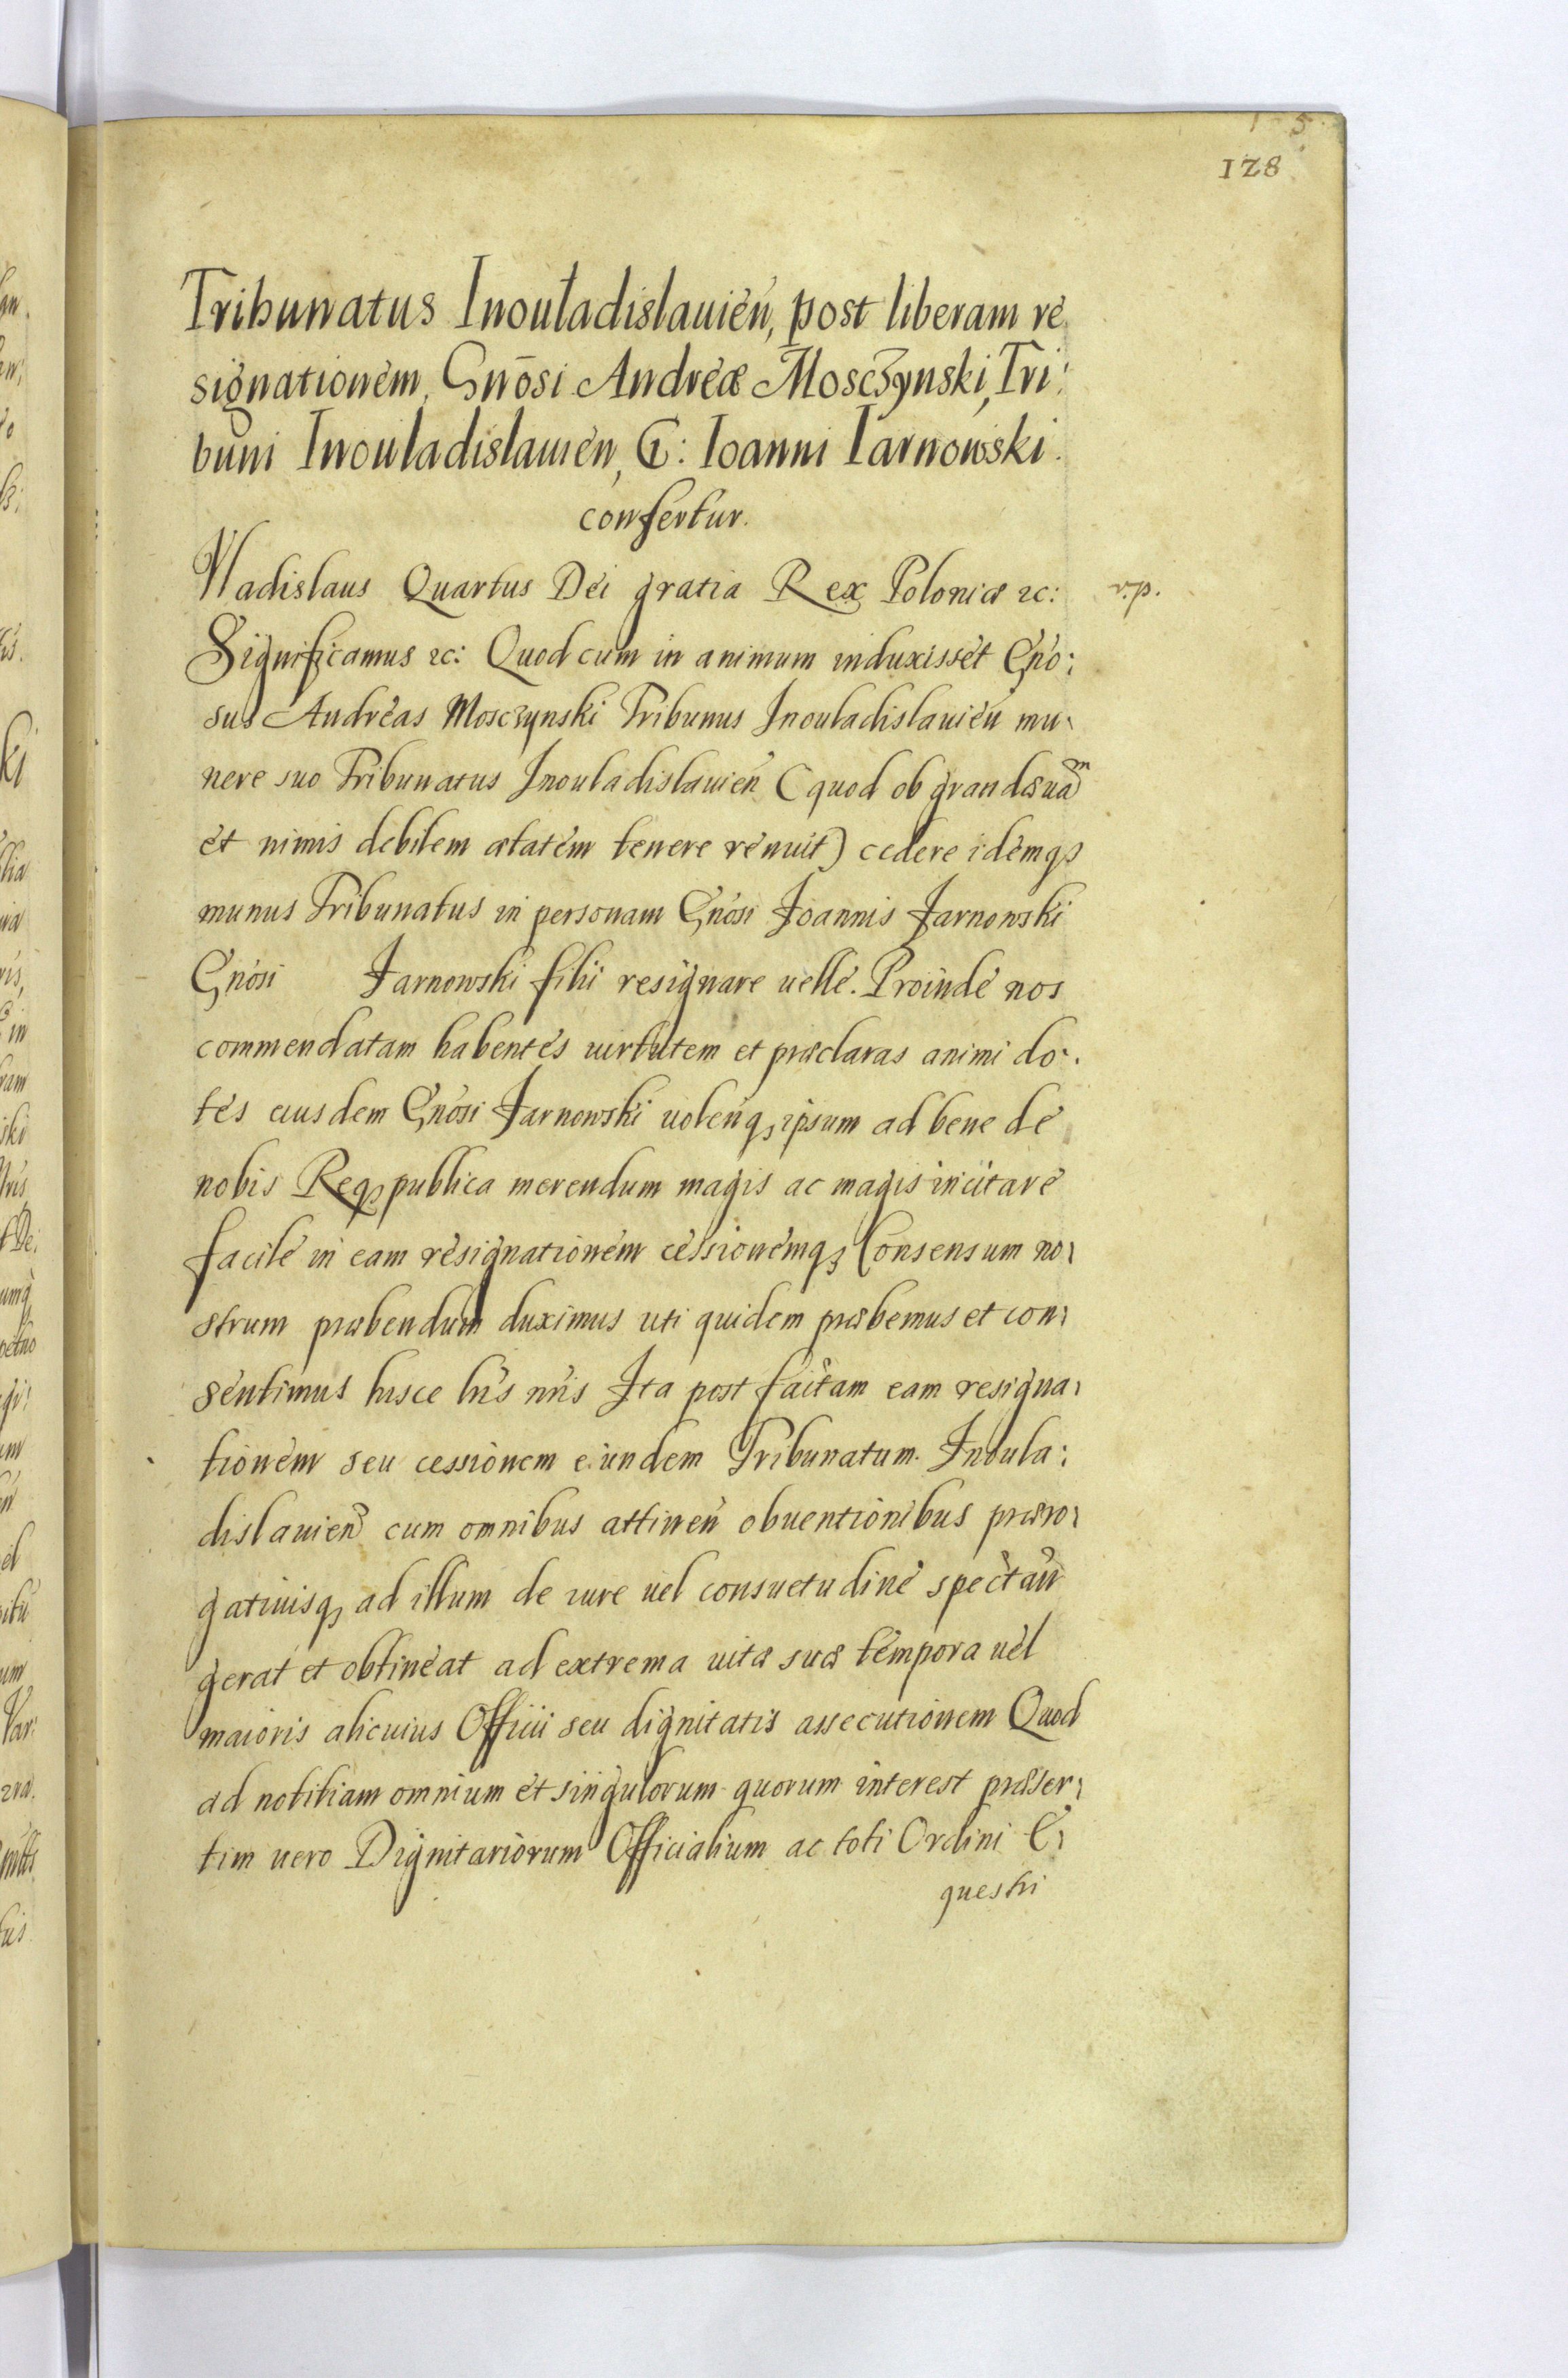 128
Tribunatus Inouladislauien, post liberam re
signationem, Gnosi Andreæ Mosczynski, Tri:
buni Inouladislauien, G: Ioanni Iarnowski
confertur.
Vladislaus Quartus Dei gratia Rex Poloniæ ꝛc: v.p.
Significamus ꝛc: Quod cum in animum induxisset Gno:
sus Andreas Mosczynski Tribunus Inouladislauien mu
nere suo Tribunatus Inouladislauien (quod ob grandæuam
et nimis debilem ætatem tenere renuit) cedere idemqꝫ
munus Tribunatus in personam Gnosi Joannis Jarnowski
Gnosi Jarnowski filii resignare uelle. Proinde nos
commendatam habentes uirtutem et præclaras animi do:
tes eiusdem Gnosi Jarnowski uolenqꝫ ipsum ad bene de
nobis Reqꝫ publica merendum magis ac magis incitare
facile in eam resignationem cessionemqꝫ Consensum no
strum præbendum duximus uti quidem præbemus et con
sentimus hisce lris nris Ita post factam eam resigna
tionem seu cessionem eundem Tribunatum Inoula:
dislauien cum omnibus attinen obuentionibus præro
gatiuisqꝫ ad illum de iure uel consuetudine spectan
gerat et obtineat ad extrema uitæ suæ tempora uel
maioris alicuius Officii seu dignitatis assecutionem Quod
ad notitiam omnium et singulorum quorum interest præser
tim uero Dignitariorum Officialium ac toti Ordini E
questri